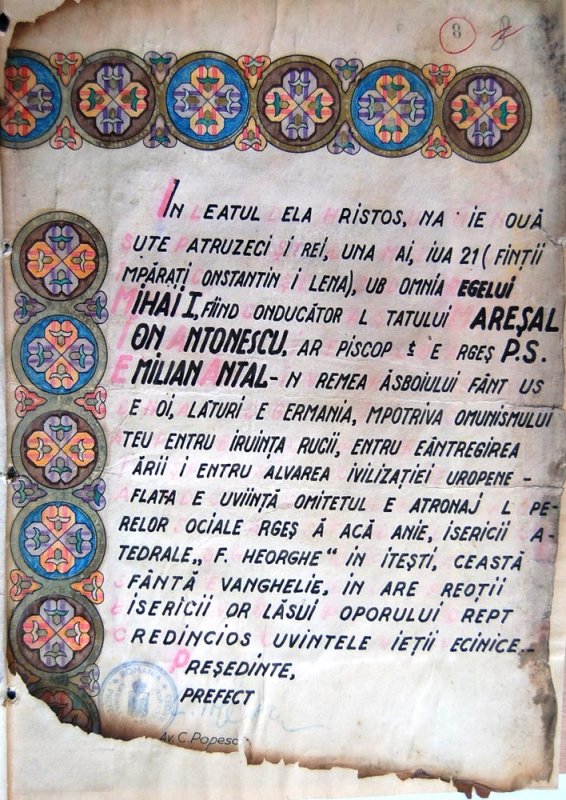 8
IN LEATUL ELA RISTOS, NA IE OUĂ
SUTE PATRUZECI ȘI REI, UNA AI, IUA 21 ( FINȚII
MPĂRAȚI ONSTANTIN I LENA), UB OMNIA EGELUI
MIHAI I, FIIND ONDUCĂTOR L TATULUI AREȘAL
ION ANTONESCU, AR PISCOP E RGEȘ P.S.
EMILIAN ANTAL- N REMEA ĂSBOIULUI FÂNT US
E OI, LATURI E ERMANIA, MPOTRIVA OMUNISMULUI
TEU PENTRU IRUINȚA RUCII, ENTRU EÂNTREGIREA
ȚĂRII I ENTRU ALVAREA IVILIZAȚIEI UROPENE -
AFLATA E UVIINȚĂ OMITETUL E ATRONAJ L PE-
RELOR OCIALE RGEȘ Ă ACĂ ANIE, ISERICII A-
TEDRALE „ F. HEORGHE" IN ITEȘTI, CEASTĂ
SFÂNTĂ EVANGHELIE, IN ARE REOȚII
BISERICII OR LĂSUI OPORULUI REPT
CREDINCIOS UVINTELE IEȚII ECINICE.-
PREȘEDINTE,
PREFECT
Av. C. Popesc